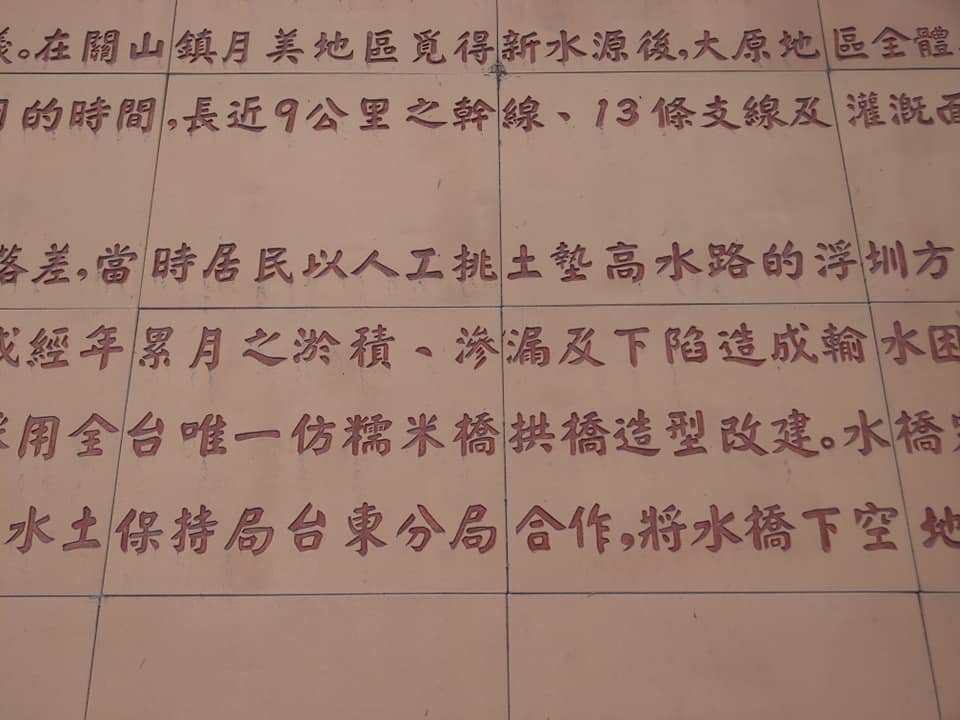 。在關山鎮月美地區覓得新水源後,大原地區全體
的時間,長近9公里之幹線、13條支線及灌溉面
落差,當時居民以人工挑土墊高水路的浮圳方
成經年累月之淤積、滲漏及下陷造成輸水困
用全台唯一仿糯米橋拱橋造型改建。水橋
水土保持局台東分局合作,將水橋下空地